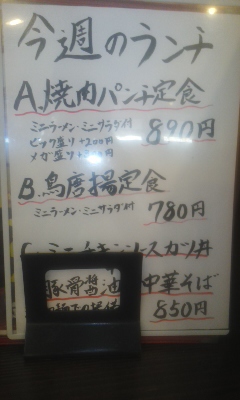 今週のランチ
A.焼肉パンチ定食
ミニラーメン・ミニサラダ付 890円
ピラフ盛り+200円
メガ盛り+300円
B.鳥唐揚定食
ミニラーメン・ミニサラダ付 780円
C.ミニチキンレスカツ丼
豚骨醤油 中華そば
850円